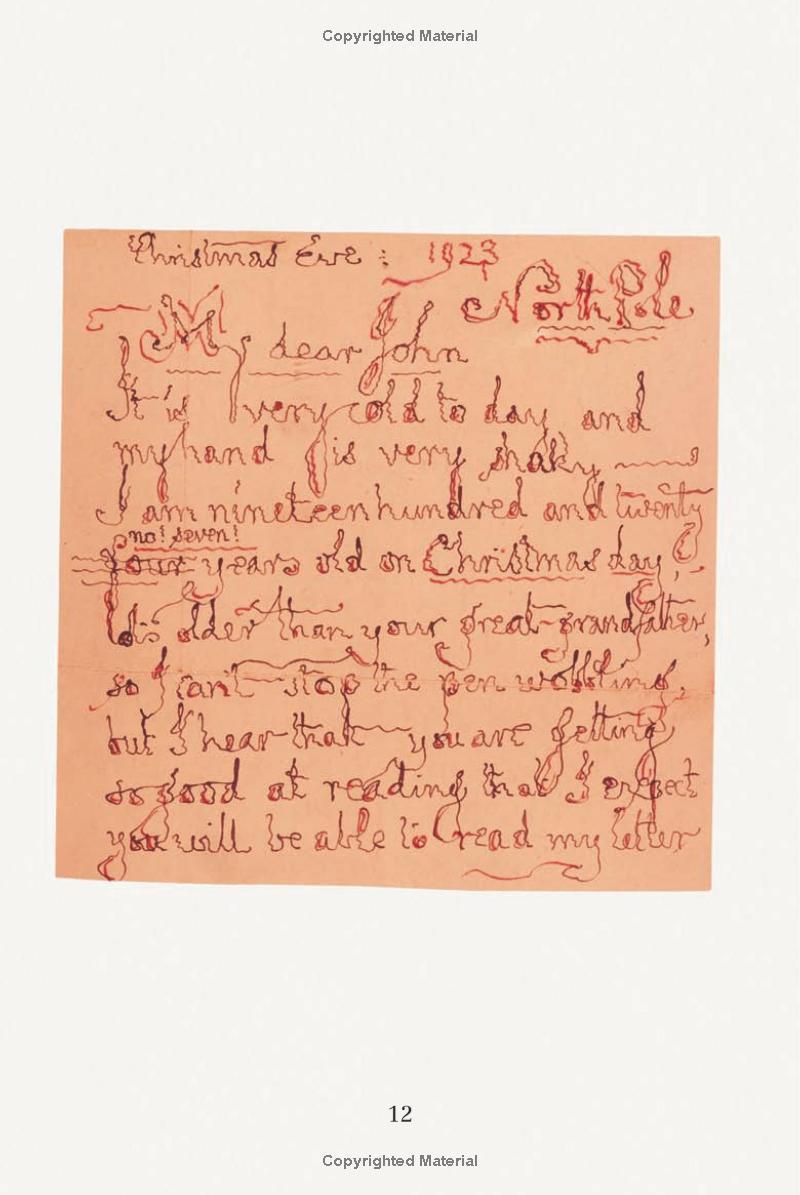 Copyrighted Material
Christmas Eve : 1923
North Pole
My dear John
It is very cold to day and
my hand is very shaky —
I am nineteen hundred and twenty
no! seven!
four years old on Christmas day, -
lots older than your great-grandfather,
so I can't stop the pen wobbling,
but I hear that you are getting
so good at reading that I expect
you will be able to read my letter
12
Copyrighted Material